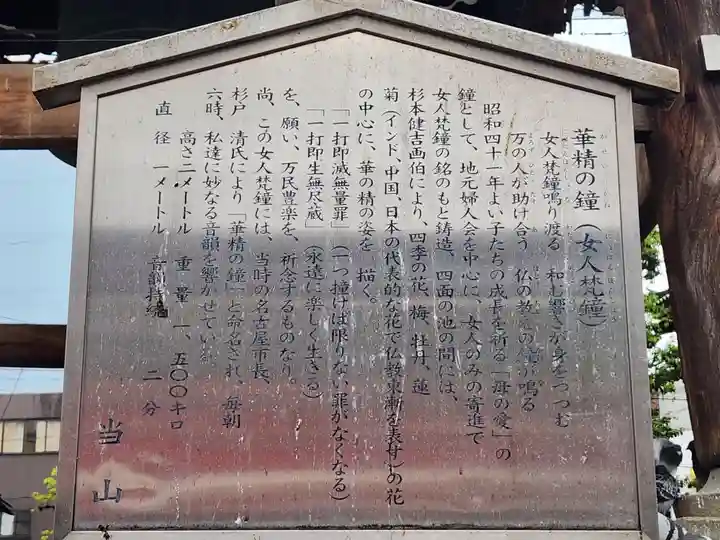 華精の鐘（女人梵鐘）
女人梵鐘鳴り渡る 和む響きが身をつつむ
万の人が助け合う 仏の教えの鐘が鳴る
昭和四十一年よい子たちの成長を祈る「母の愛」の
鐘として、地元婦人会を中心に、女人のみの寄進で
女人梵鐘の銘のもと鋳造、四面の池の間には、
杉本健吉画伯により、四季の花、梅、牡丹、蓮
菊（インド、中国、日本の代表的な花で仏教東漸を表す）の花
の中心に、華の精の姿を 描く。
「一打即滅無量罪」（一つ撞けば限りない罪がなくなる）
「一打即生無尽蔵」（永遠に楽しく生きる）
を、願い、万民豊楽を、祈念するものなり。
尚、この女人梵鐘には、当時の名古屋市長、
杉戸 清氏により「華精の鐘」と命名され、毎朝
六時、私達に妙なる音韻を響かせている。
高さ二メートル 重量 一、五〇〇キロ
直径 一メートル 音韻持続 二分
当山